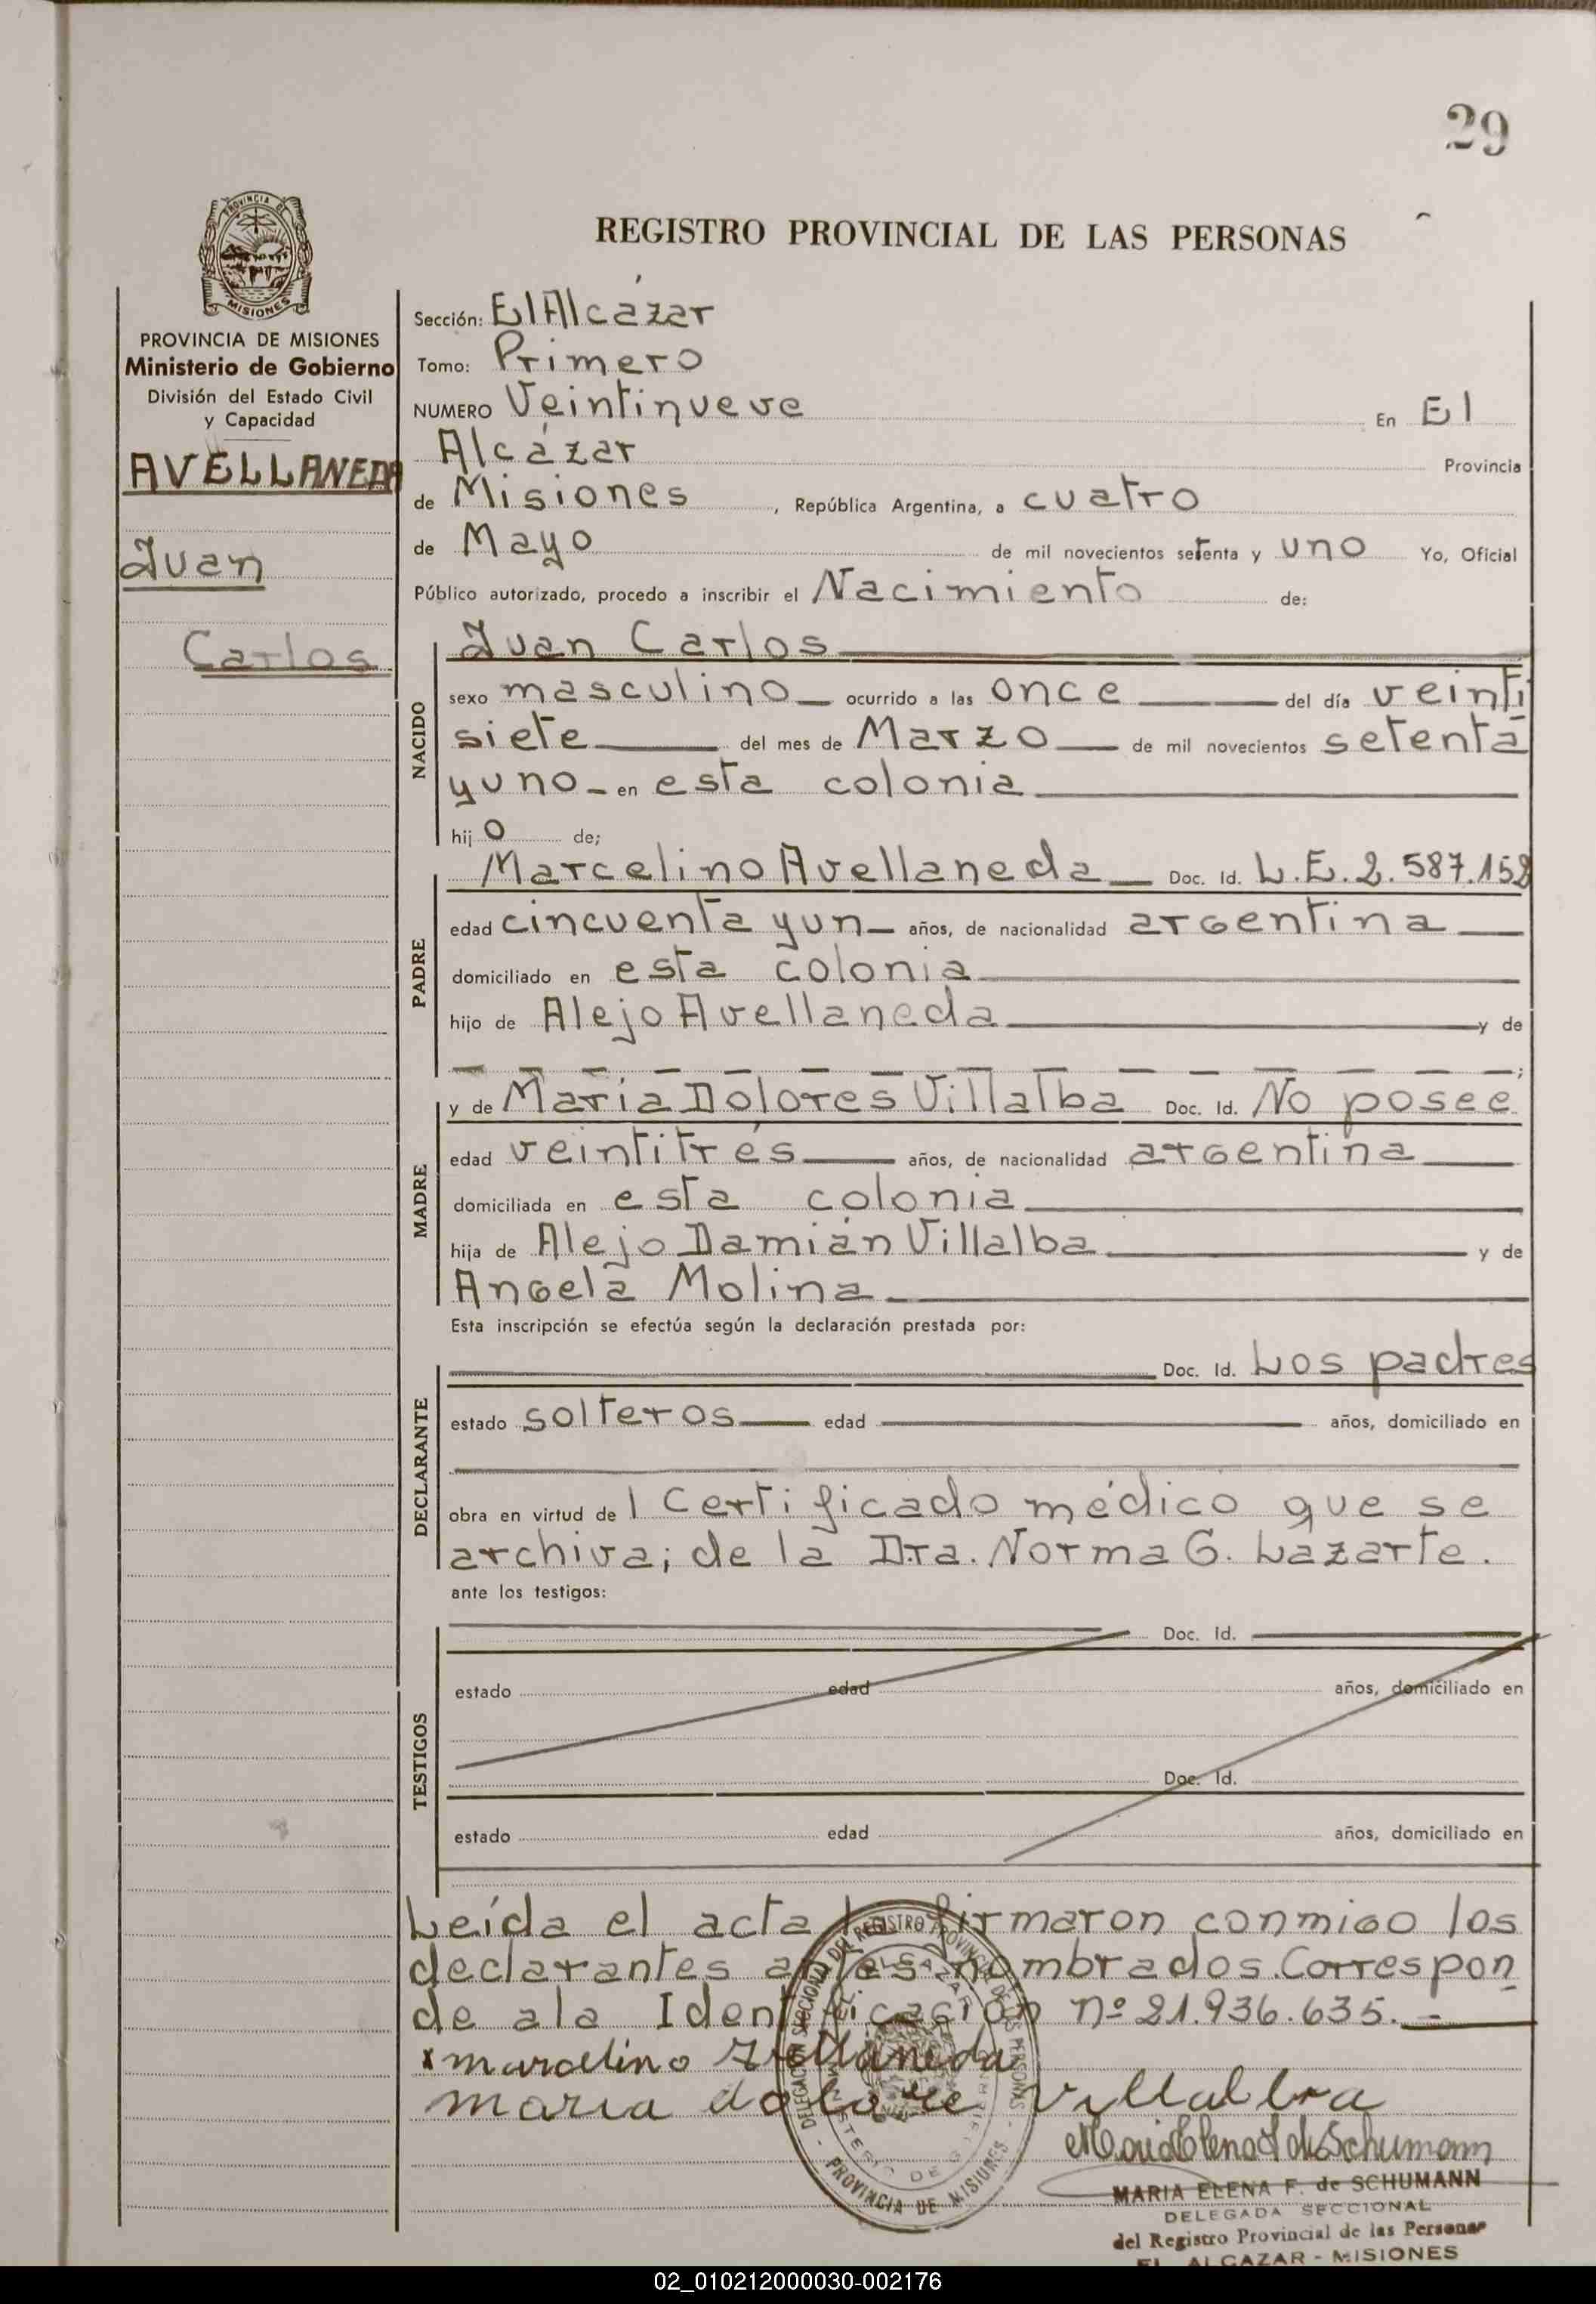 29
PROVINCIA DE
MISIONES
PROVINCIA DE MISIONES
Ministerio de Gobierno
División del Estado Civil
y Capacidad
AVELLANEDA
Juan
Carlos
REGISTRO PROVINCIAL DE LAS PERSONAS
Sección: El Alcázar
Tomo: Primero
NUMERO Veintinueve En El
Alcázar Provincia
de Misiones, República Argentina, a cuatro
de Mayo de mil novecientos setenta y uno Yo, Oficial
Público autorizado, procedo a inscribir el Nacimiento de:
NACIDO
Juan Carlos
sexo masculino ocurrido a las once del día veinti
siete del mes de Marzo de mil novecientos setenta
y uno en esta colonia
hijo de;
PADRE
Marcelino Avellaneda Doc. Id. L.E. 2.587.152
edad cincuenta y un años, de nacionalidad argentina
domiciliado en esta colonia
hijo de Alejo Avellaneda y de
MADRE
y de María Dolores Villalba Doc. Id. No posee
edad veintitrés años, de nacionalidad argentina
domiciliada en esta colonia
hija de Alejo Damián Villalba y de
Angela Molina
Esta inscripción se efectúa según la declaración prestada por:
DECLARANTE
Doc. Id. Los padres
estado solteros edad años, domiciliado en
obra en virtud de 1 Certificado médico que se
archiva; de la Dra. Norma G. Lazarte.
ante los testigos:
TESTIGOS
Doc. Id.
estado edad años, domiciliado en
Doc. Id.
estado edad años, domiciliado en
Leída el acta la firmaron conmigo los
declarantes antes nombrados. Correspon
de a la Identificación nº 21.936.635.
x marcelino Avellaneda
maria dolore villalba
MARIA ELENA F. de SCHUMANN
DELEGADA SECCIONAL
del Registro Provincial de las Personas
EL ALCAZAR - MISIONES
02_010212000030-002176